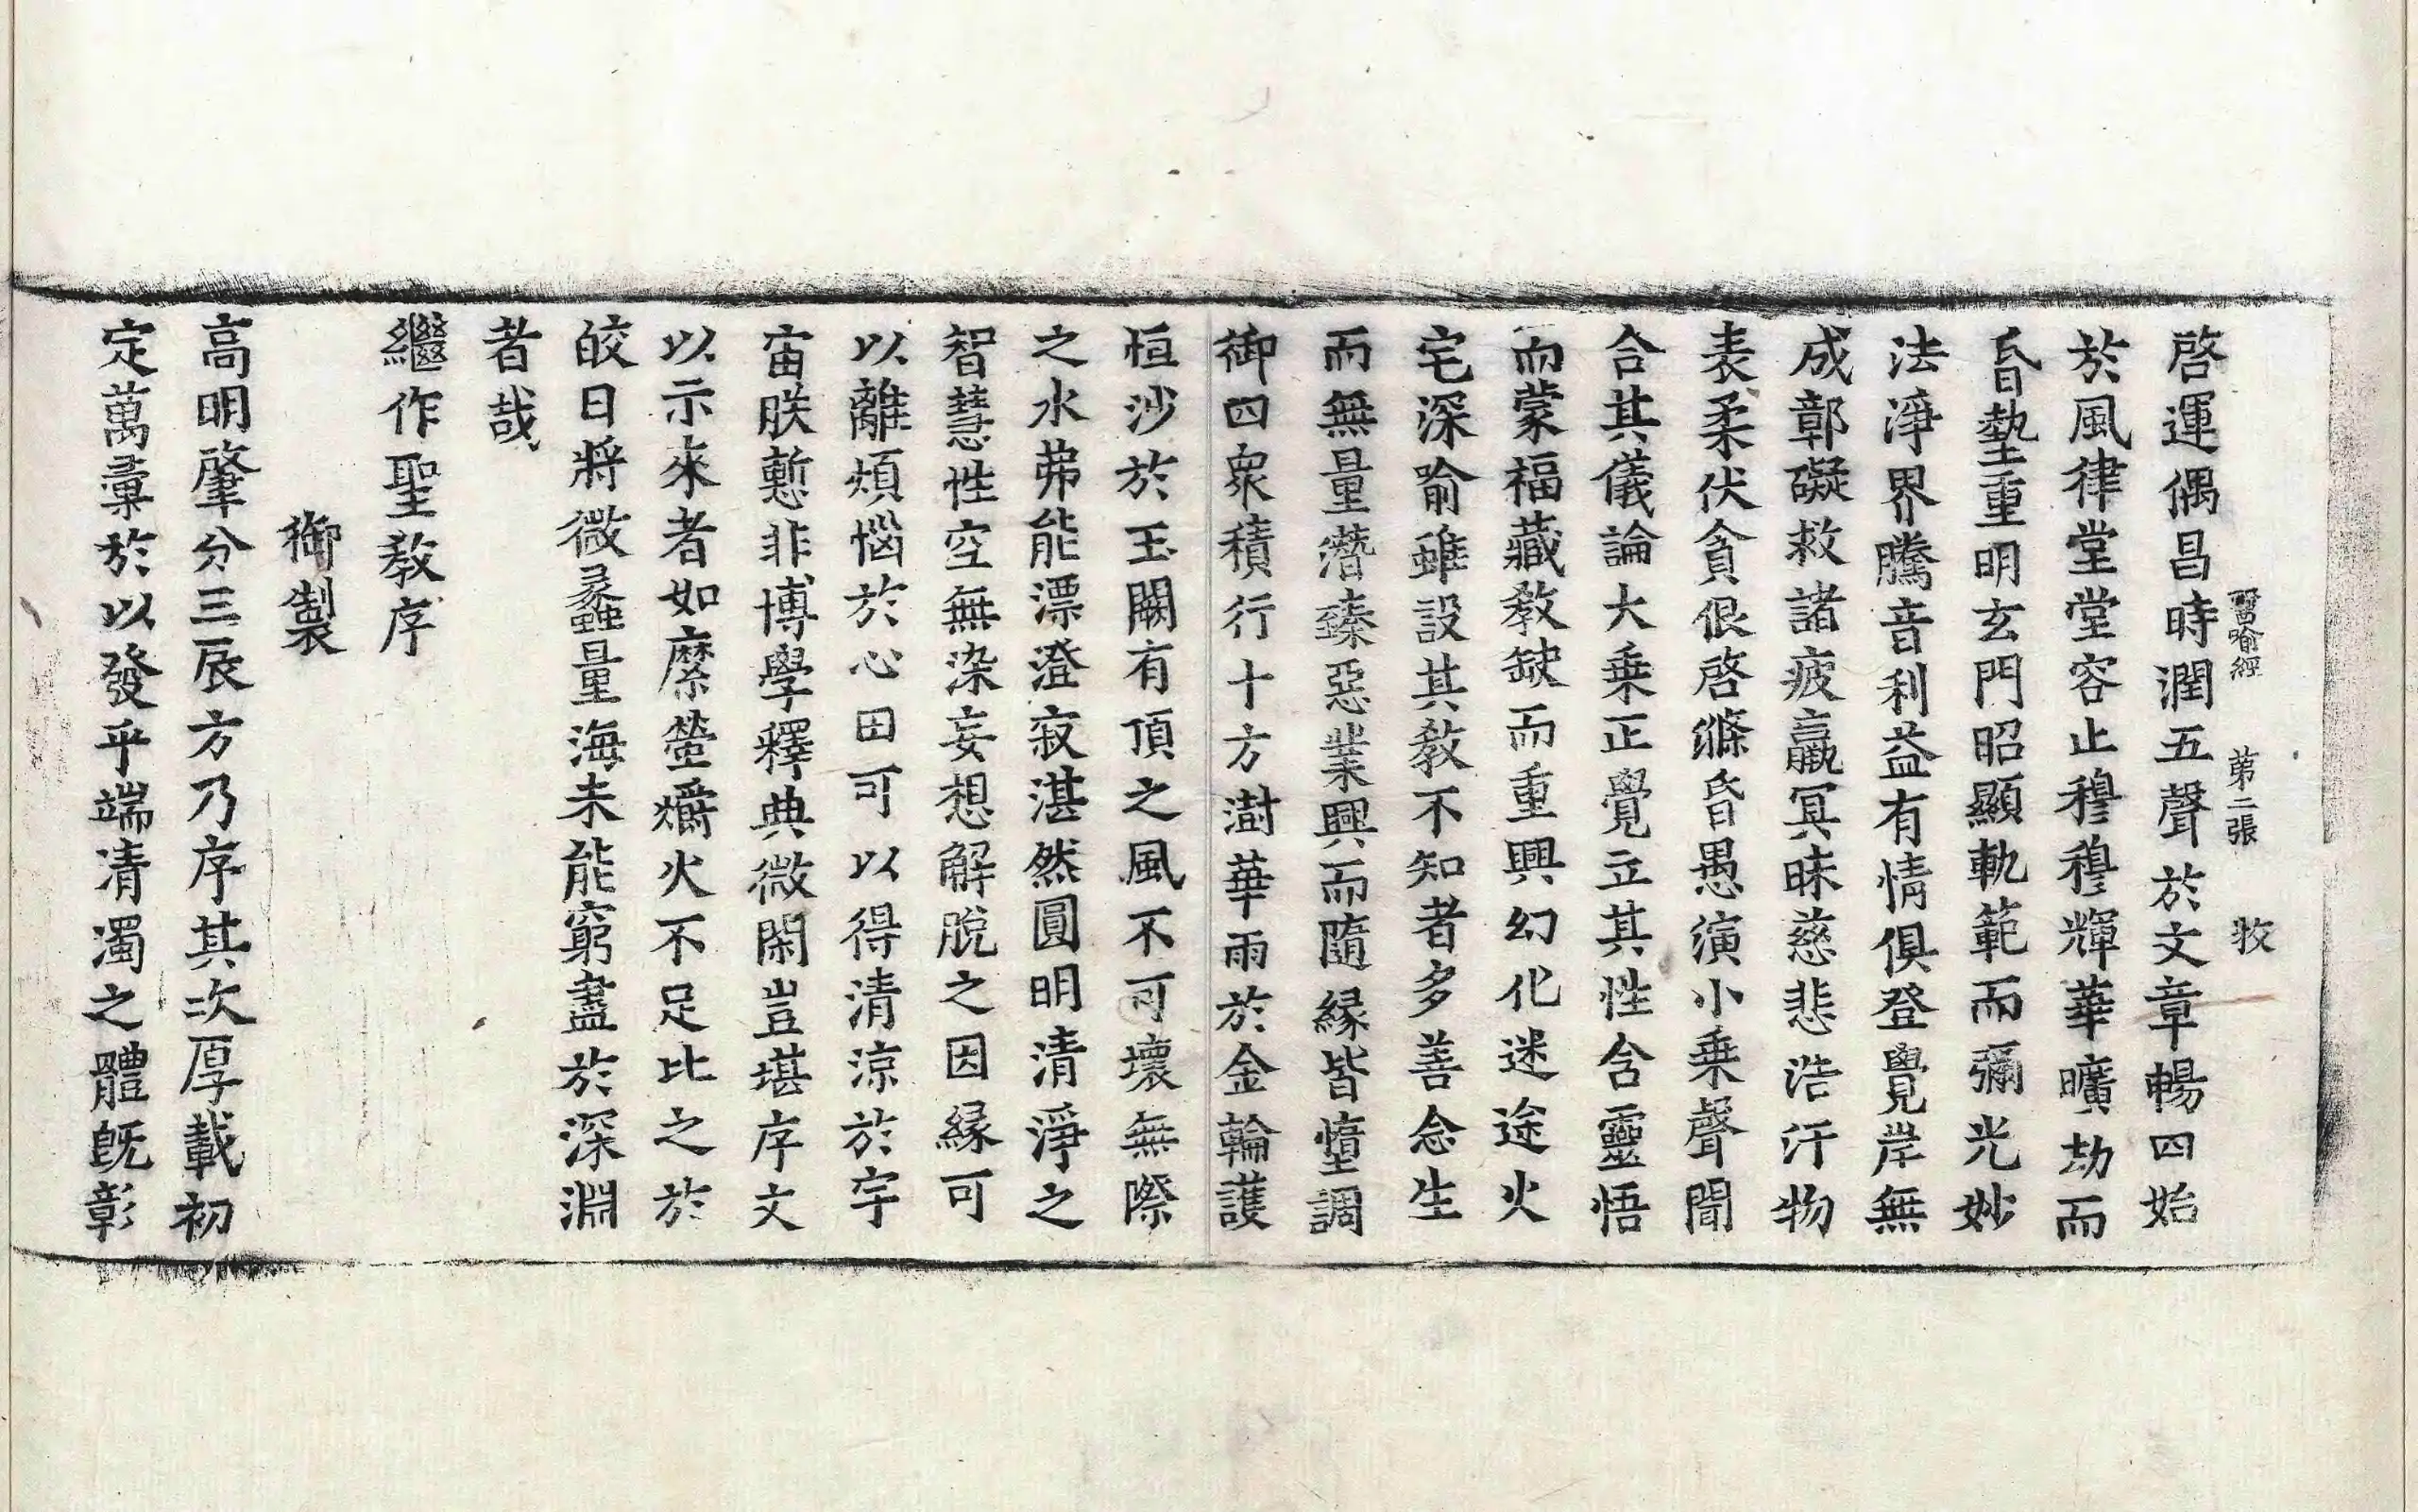 啓運偶昌時潤五聲於文章暢四始
譬喻經 第二張 牧
於風律堂堂容止穆穆輝華曠劫而
昏墊重明玄門昭顯軌範而彌光妙
法淨界騰音利益有情俱登覺岸無
成鄣礙救諸疲羸冥昧慈悲浩汗物
表柔伏貪佷啓滌昏愚演小乗聲聞
合其儀論大乗正覺立其性含靈悟
而蒙福藏教缺而重興幻化迷途火
宅深喻雖設其教不知者多善念生
而無量潛臻惡業興而隨縁皆墮調
御四衆積行十方澍華雨於金輪護
恒沙於玉闕有頂之風不可壞無際
之水弗能漂澄寂湛然圓明清淨之
智慧性空無染妄想解脫之因縁可
以離煩惱於心田可以得清涼於宇
宙朕慙非博學釋典微閑豈堪序文
以示來者如縻螢爝火不足比之於
皎日將微蠡量海未能窮盡於深淵
者哉
繼作聖教序
御製
高明肇分三辰方乃序其次厚載初
定萬彙於以發乎端清濁之體旣彰